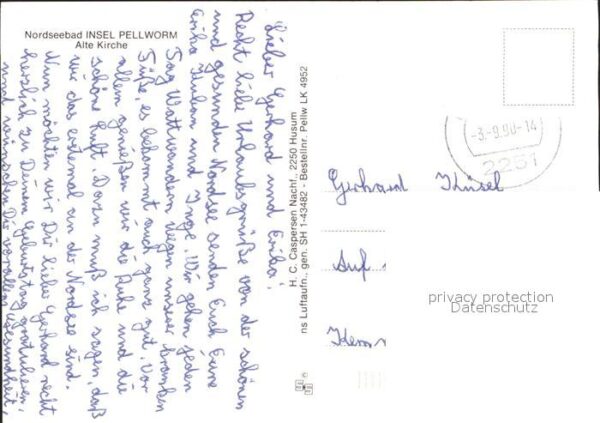 Nordseebad INSEL PELLWORM
Alte Kirche
Lieber Gerhard und Erika!
Recht liebe Urlaubsgrüße von der schönen
und gesunden Nordsee senden Euch Eure
Erika, und Inge. Wir gehen jeden
Tag Wattwandern wegen unserer kranken
Füße, es bekommt auch ganz gut. Vor
allem genießen wir die Ruhe und die
schöne Luft. Dazu muß ich sagen, daß
wir das erstemal an der Nordsee sind.
Nun möchten wir Dir lieber Gerhard recht
herzlich zu Deinem Geburtstag gratulieren,
und wünschen Dir vor allem Gesundheit,
H. C. Caspersen Nachf., 2250 Husum
ns Luftaufn., gen. SH 1-43482 - Bestellnr. Pellw LK 4952
-3.-9.90-14
2251
Gerhard
Auf
privacy protection
Datenschutz